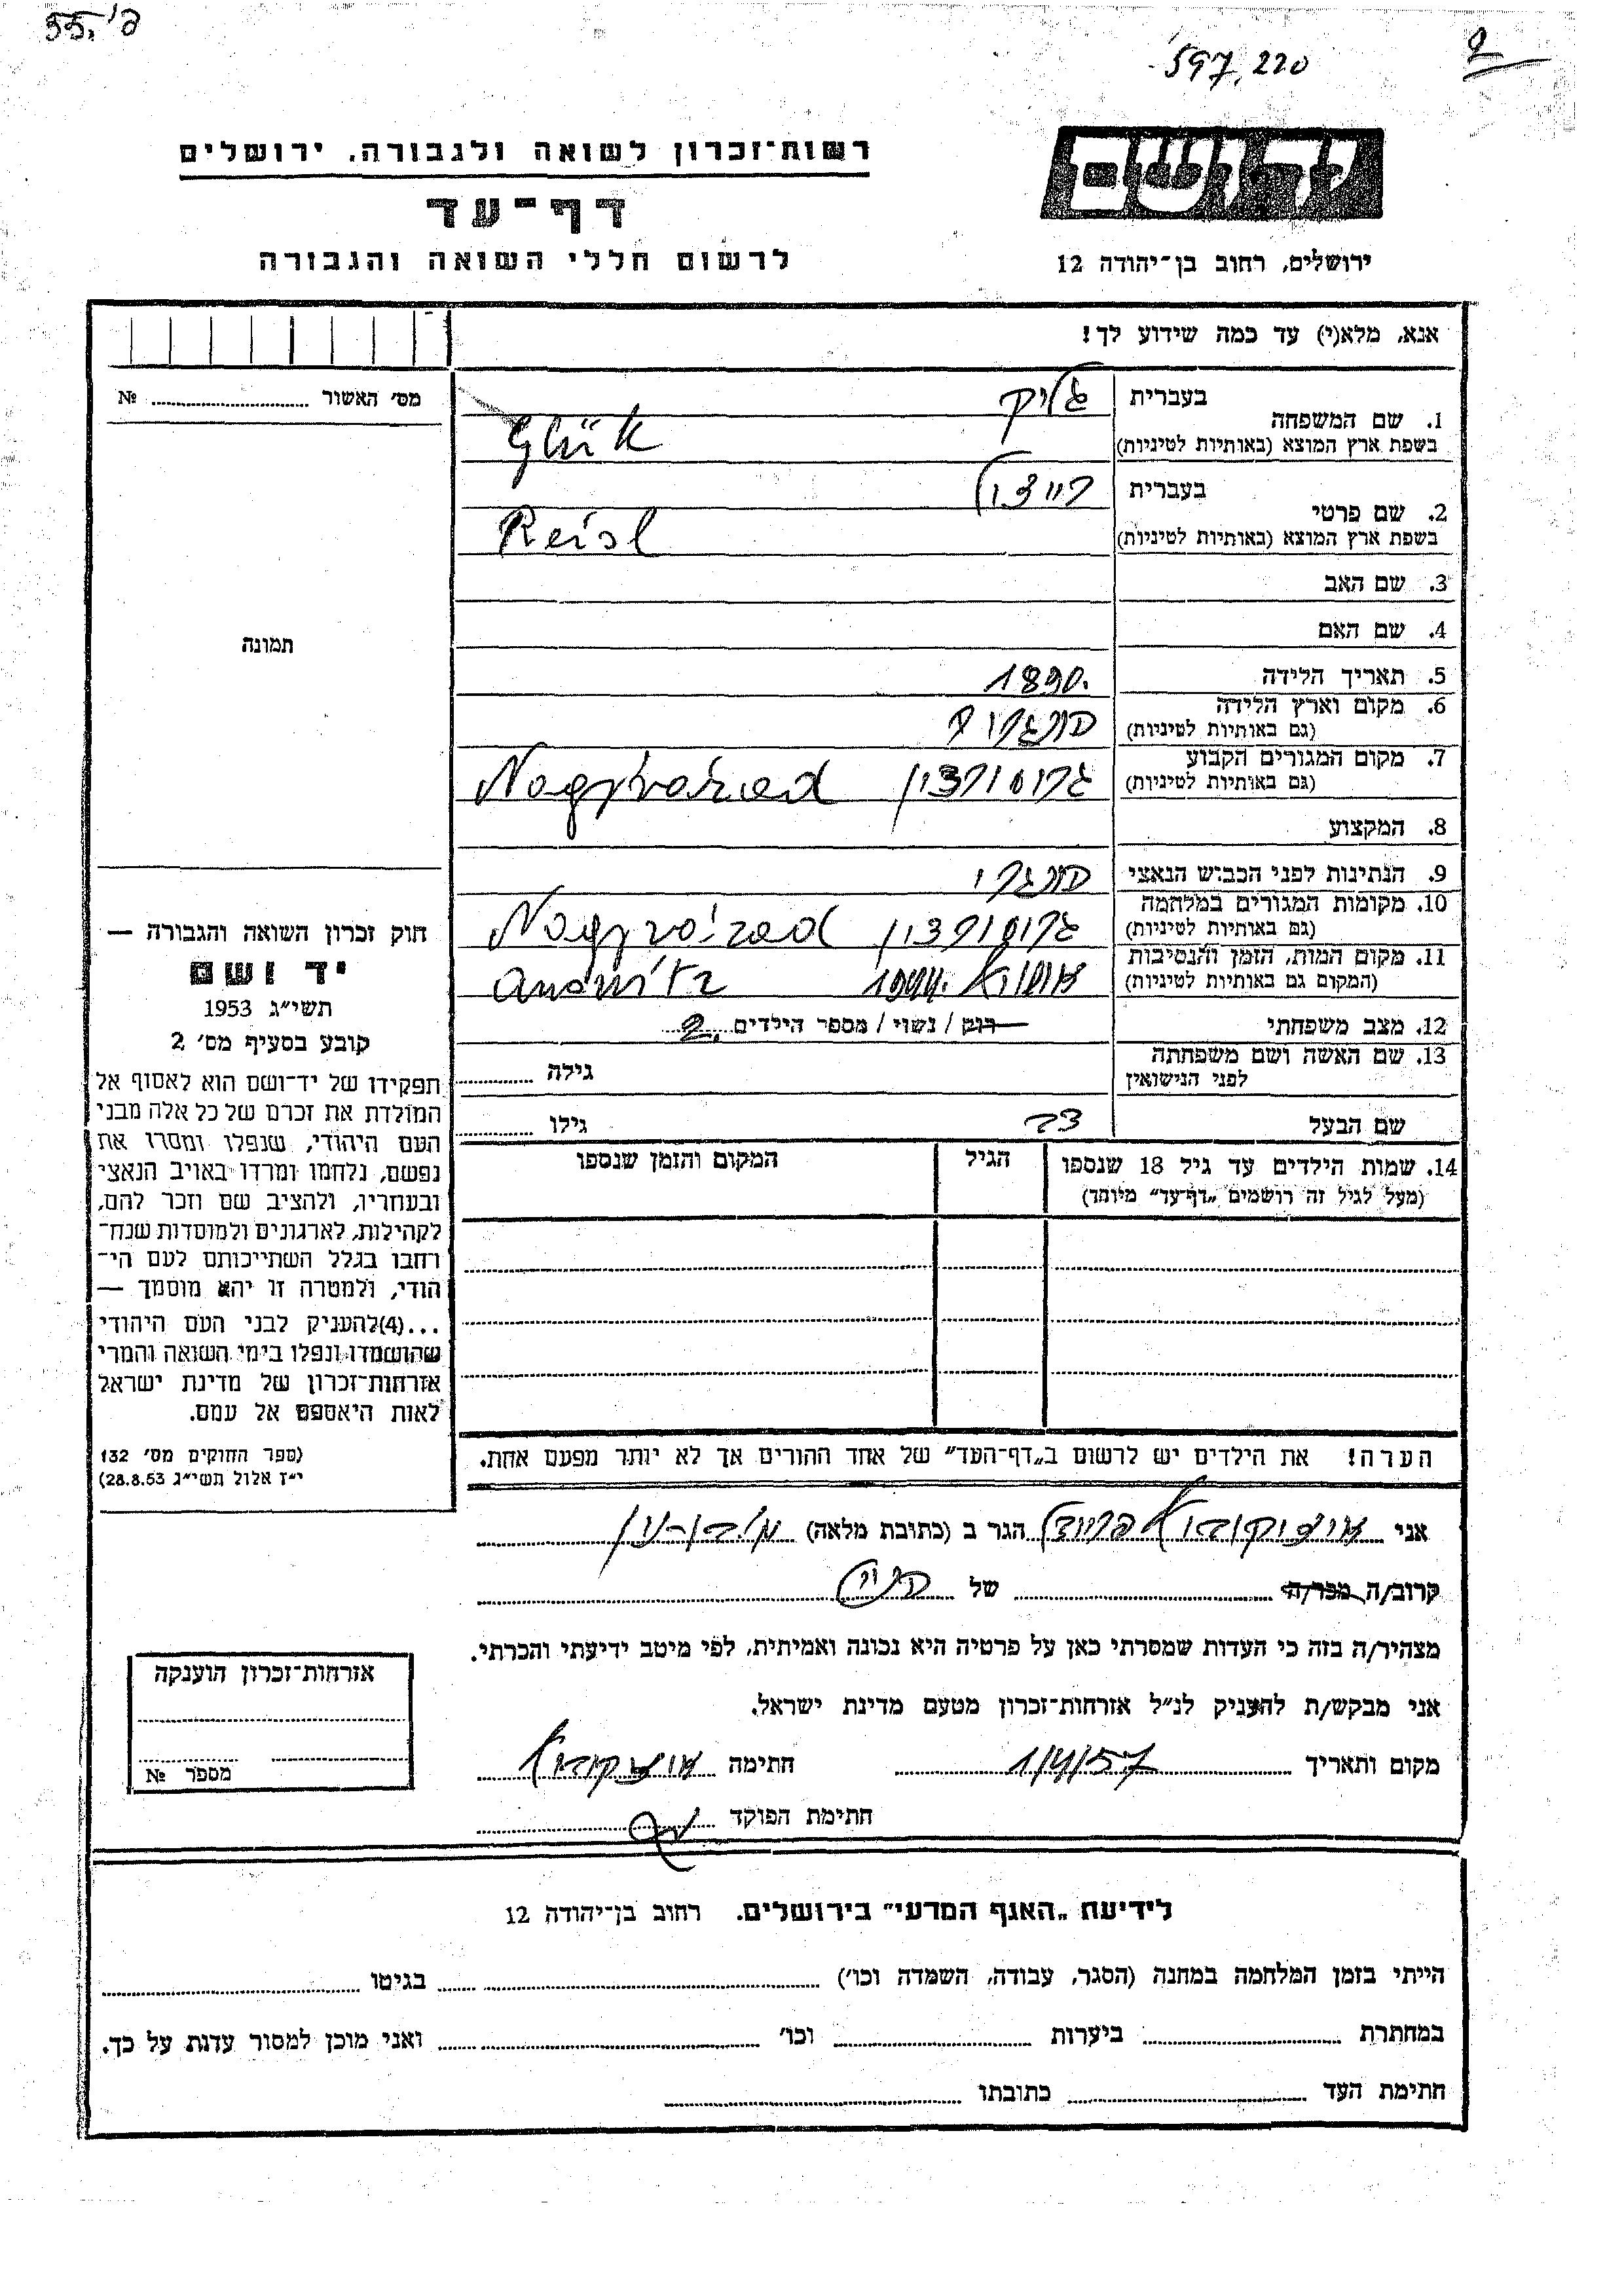 55, 'פ
597,220
רשות־זכרון לשואה ולגבורה, ירושלים
יד ושם
דף־עד
לרשום חללי השואה והגבורה
ירושלים, רחוב בן־יהודה 12
אנא, מלא(י) עד כמה שידוע לך!
מס׳ האשור № ........
1. שם המשפחה
בעברית גליק
בשפת ארץ המוצא (באותיות לטיניות) Glük
2. שם פרטי
בעברית רייזל
בשפת ארץ המוצא (באותיות לטיניות) Reisl
3. שם האב
4. שם האם
תמונה
5. תאריך הלידה 1890.
6. מקום וארץ הלידה
(גם באותיות לטיניות)
7. מקום המגורים הקבוע
(גם באותיות לטיניות) גרוסורדין Nagyvárad
8. המקצוע
9. הנתינות לפני הכביש הנאצי הונגרי
10. מקומות המגורים במלחמה
(גם באותיות לטיניות) גרוסורדין Nagyvárad
11. מקום המות, הזמן והנסיבות
(המקום גם באותיות לטיניות) 1944.
12. מצב משפחתי רוק / נשוי / מספר הילדים 2
13. שם האשה ושם משפחתה
לפני הנישואין גילה ........
שם הבעל גילו ........
14. שמות הילדים עד גיל 18 שנספו הגיל המקום והזמן שנספו
(מעל לגיל זה רושמים „דף־עד״ מיוחד)
חוק זכרון השואה והגבורה —
יד ושם
תשי״ג 1953
קובע בסעיף מס׳ 2
תפקידו של יד־ושם הוא לאסוף אל
המולדת את זכרם של כל אלה מבני
העם היהודי, שנפלו ומסרו את
נפשם, נלחמו ומרדו באויב הנאצי
ובעוזריו, ולהציב שם וזכר להם,
לקהילות, לארגונים ולמוסדות שנח־
רחבו בגלל השתייכותם לעם הי־
הודי, ולמטרה זו יהא מוסמך —
...(4)להעניק לבני העם היהודי
שהושמדו ונפלו בימי השואה והמרי
אזרחות־זכרון של מדינת ישראל
לאות היאספם אל עמם.
(ספר החוקים מס׳ 132
י״ז אלול תשי״ג 28.8.53)
הערה! את הילדים יש לרשום ב„דף־העד״ של אחד ההורים אך לא יותר מפעם אחת.
אני ........ הגר ב (כתובת מלאה) ........
קרוב/ה מכר/ה ........ של ........
מצהיר/ה בזה כי העדות שמסרתי כאן על פרטיה היא נכונה ואמיתית, לפי מיטב ידיעתי והכרתי.
אני מבקש/ת להעניק לנ״ל אזרחות־זכרון מטעם מדינת ישראל.
מקום ותאריך 1/4/57 חתימה ........
חתימת הפוקד ........
אזרחות־זכרון הוענקה
מספר №
לידיעת „האגף המדעי״ בירושלים. רחוב בן־יהודה 12
הייתי בזמן המלחמה במחנה (הסגר, עבודה, השמדה וכו׳) ........ בגיטו ........
במחתרת ........ ביערות ........ וכו׳ ........ ואני מוכן למסור עדות על כך.
חתימת העד ........ כתובתו ........